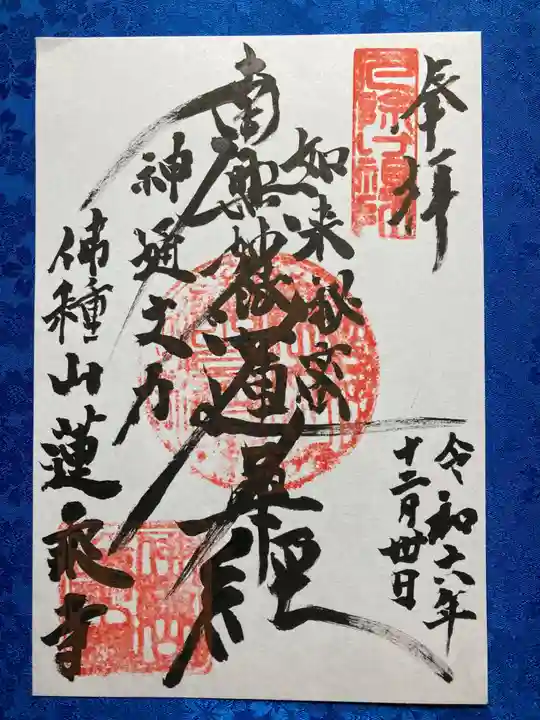 奉拝
令和六年
十二月卅日
如来秘密
南無妙法蓮華経
神通之力
佛種山蓮永寺